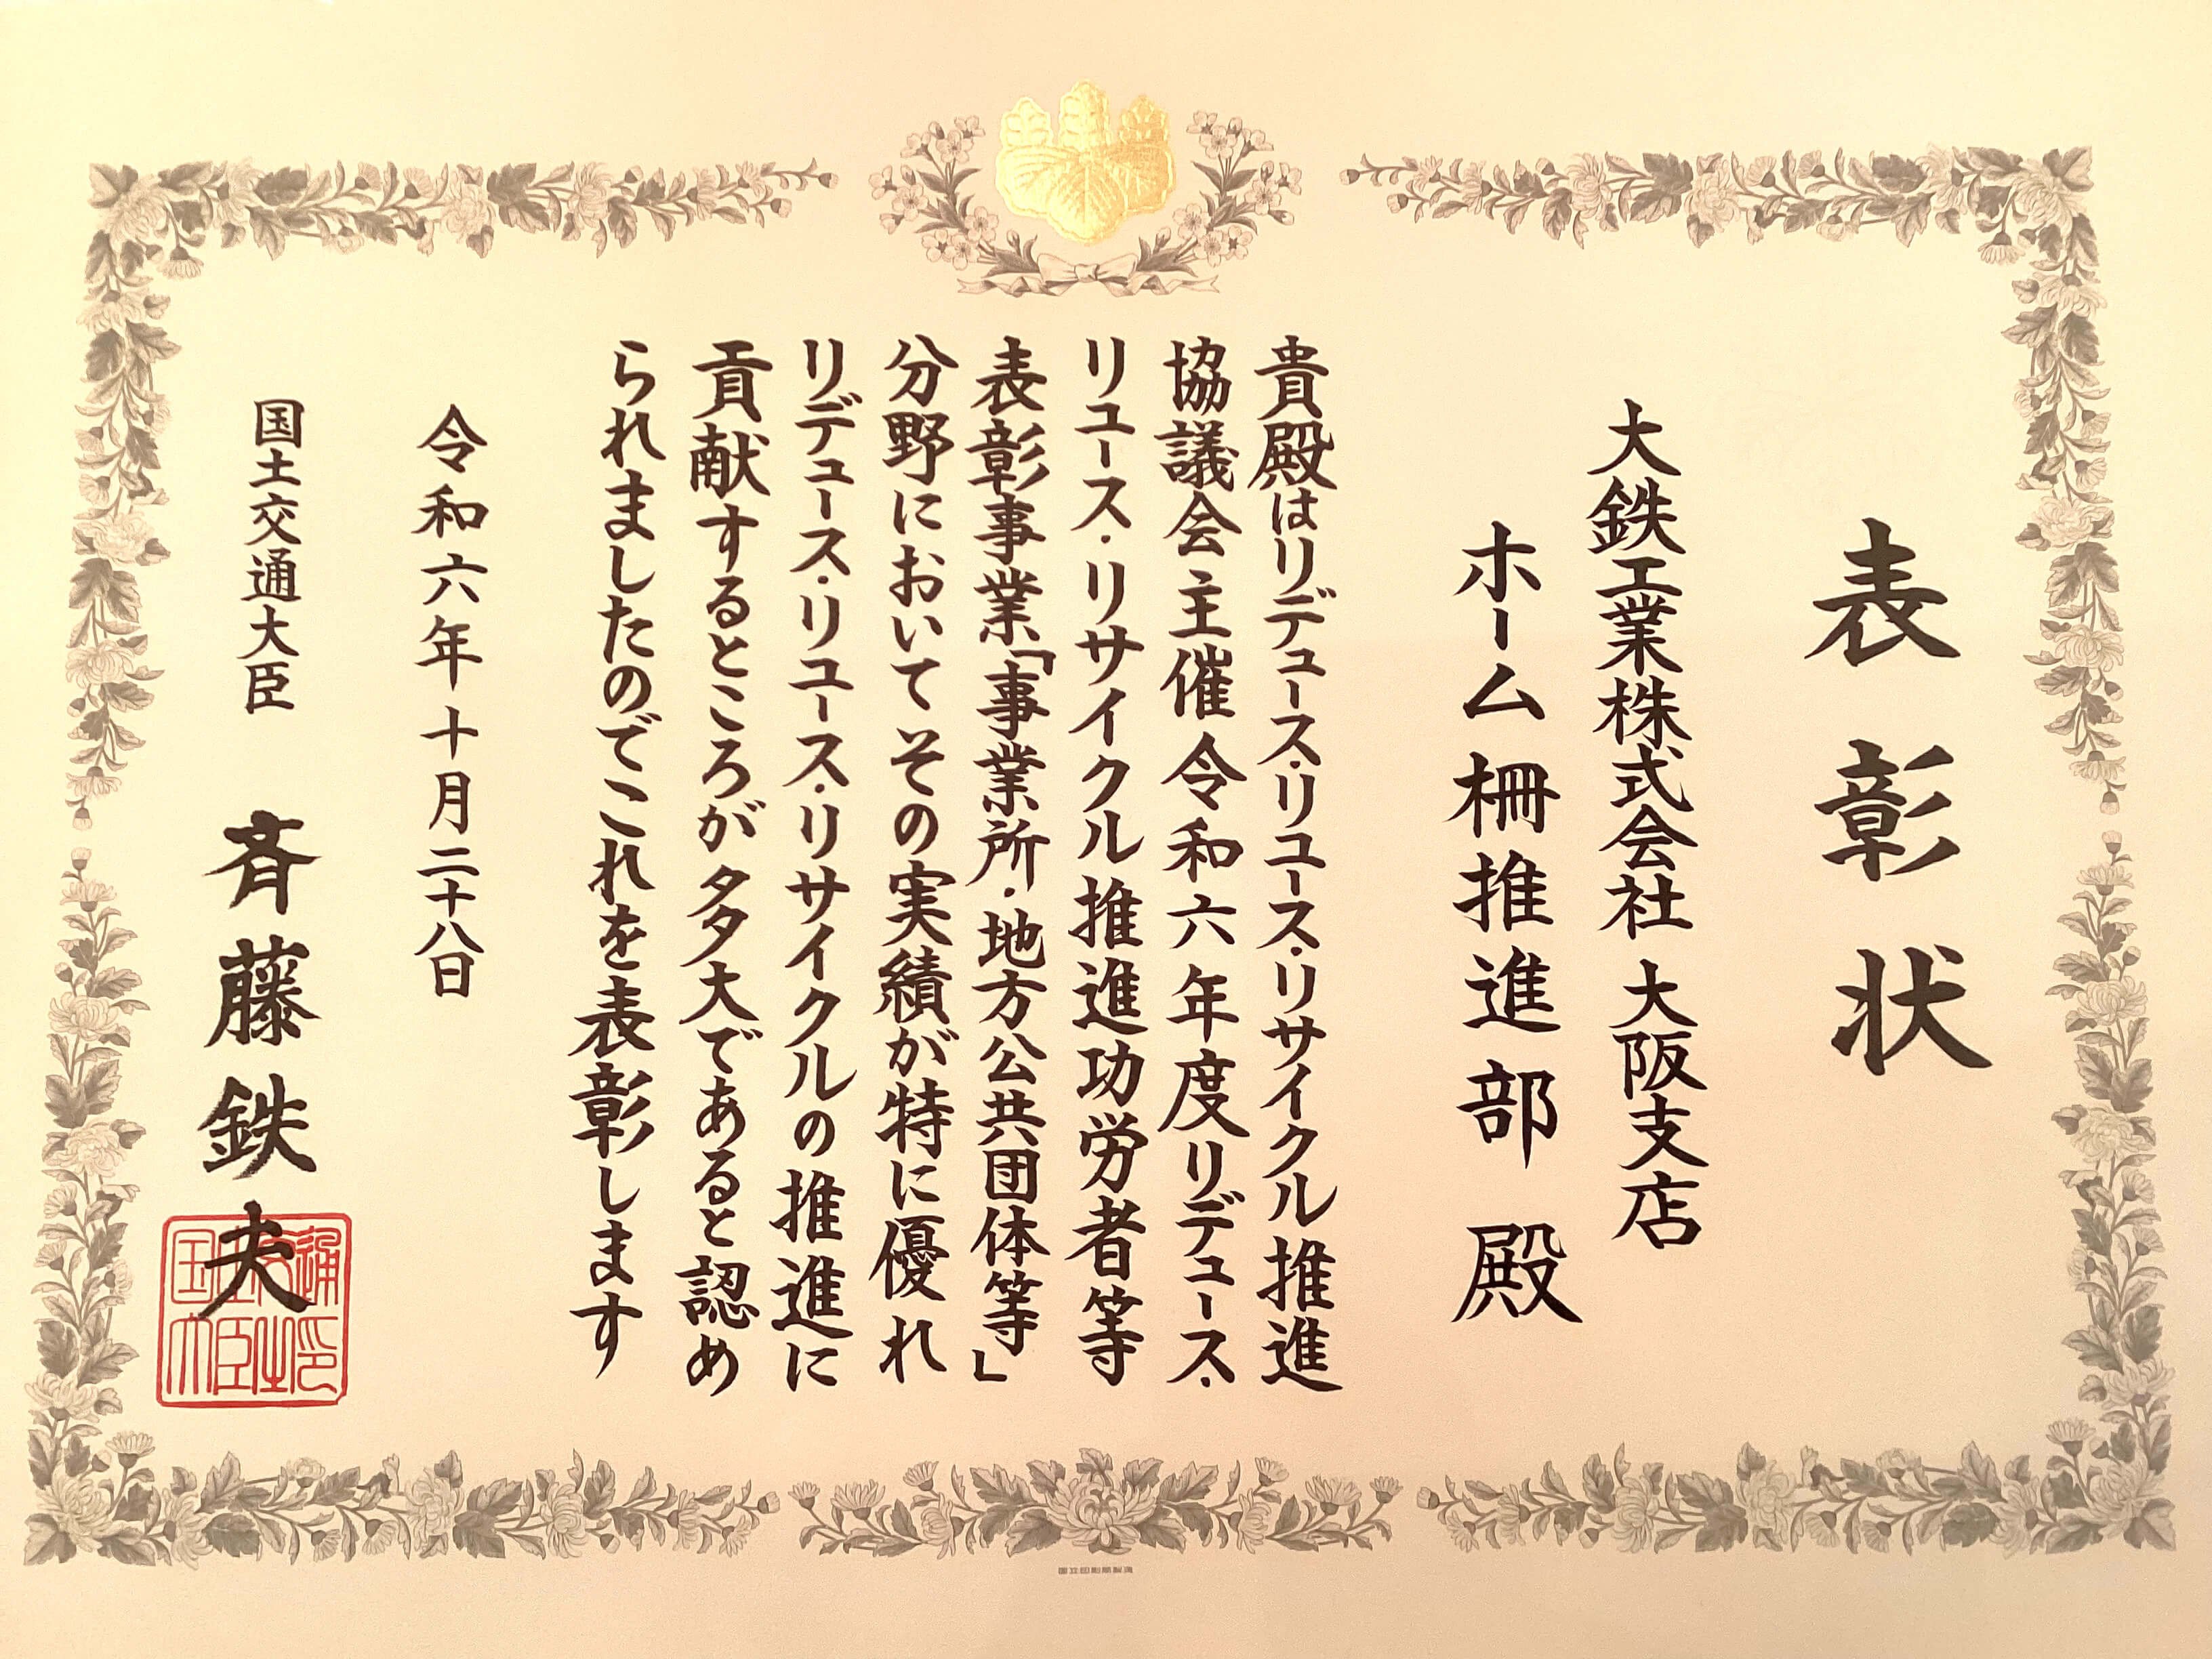 表彰状
大鉄工業株式会社 大阪支店
ホーム柵推進部 殿
貴殿はリデュース・リユース・リサイクル推進
協議会主催令和六年度リデュース・
リユース・リサイクル推進功労者等
表彰事業「事業所・地方公共団体等」
分野においてその実績が特に優れ
リデュース・リユース・リサイクルの推進に
貢献するところが多大であると認め
られましたのでこれを表彰します
令和六年十月二十八日
国土交通大臣 斉藤鉄夫
国土交通大臣之印
国立印刷局製造